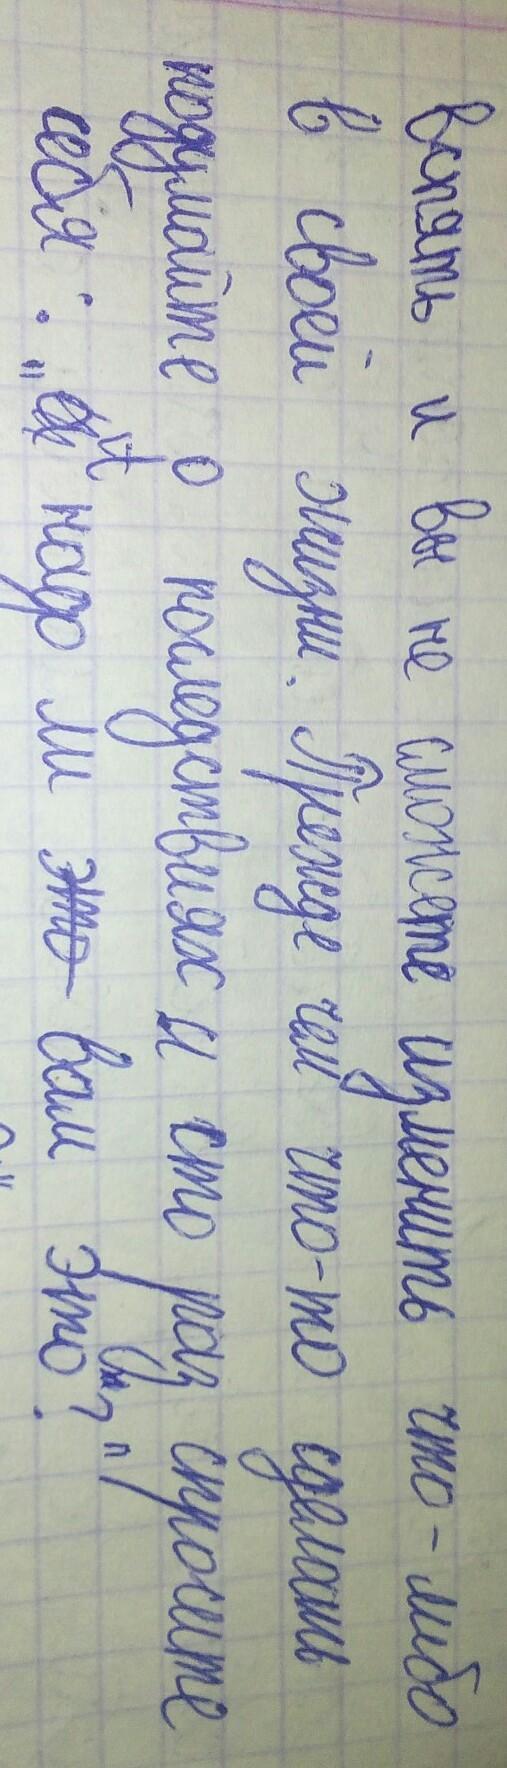 вспять и вы не сможете изменить что-либо
в своей жизни. Прежде чем что-то сделать
подумайте о последствиях и сто раз спросите
себя: „А надо ли вам это?"